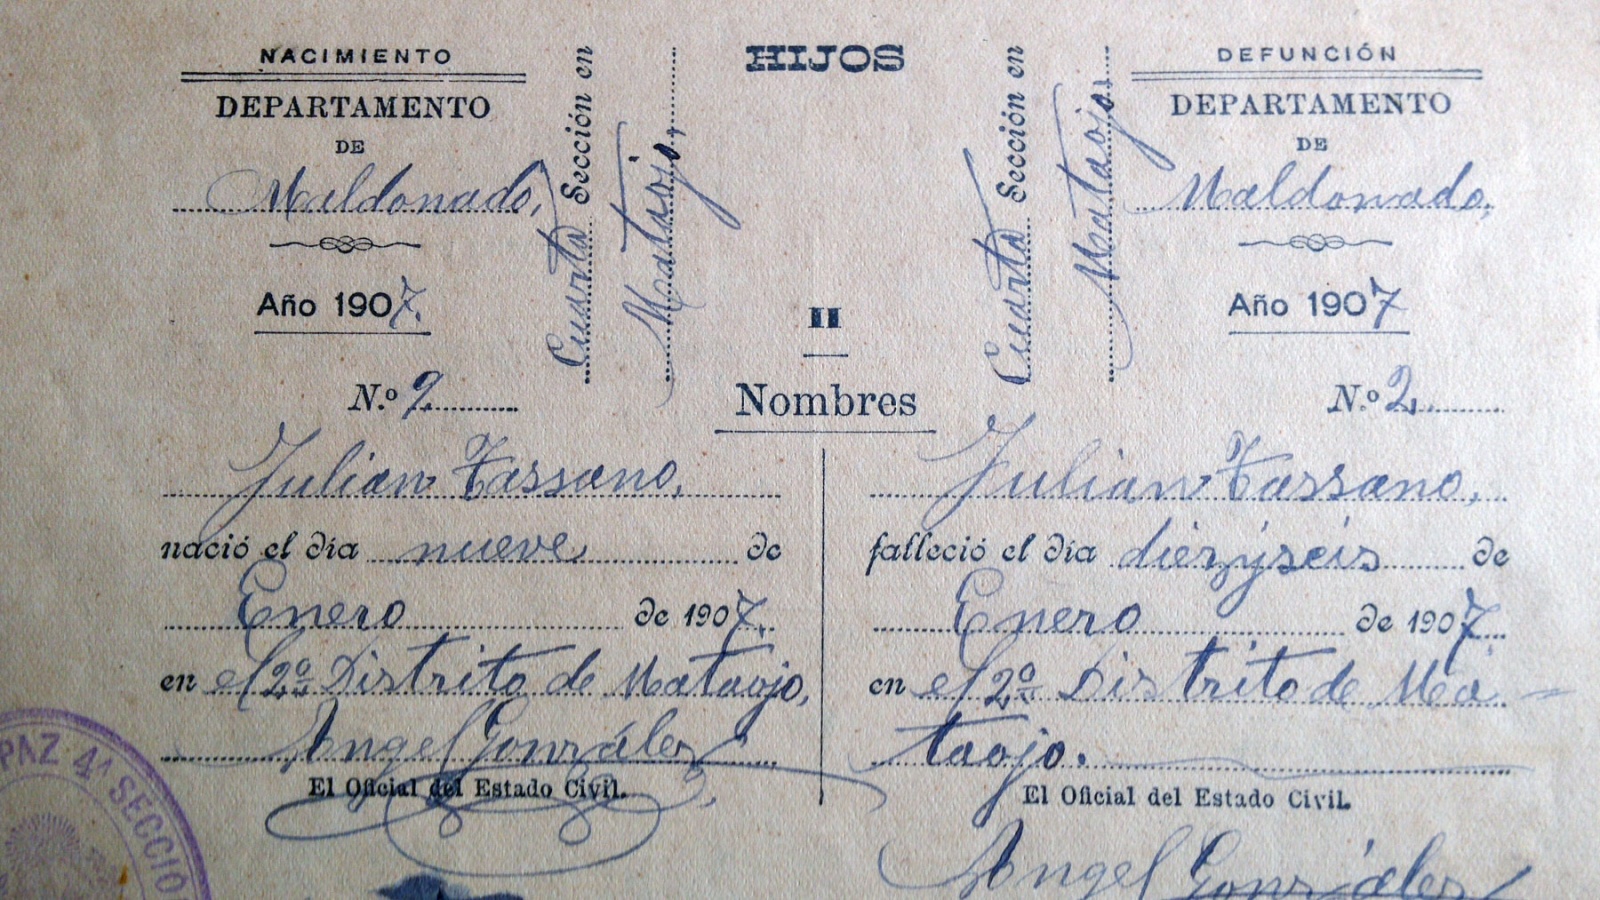 HIJOS
II
Nombres
NACIMIENTO
DEPARTAMENTO
DE
Maldonado,
Año 1907.
Cuarta Sección en
Mataojo,
N.º 9
Julian Tassano,
nació el día nueve de
Enero de 1907.
en el 2º Distrito de Mataojo,
Angel González
El Oficial del Estado Civil.
PAZ 4ª SECCIÓ
DEFUNCIÓN
DEPARTAMENTO
DE
Maldonado,
Año 1907
Cuarta Sección en
Mataojo
N.º 2
Julian Tassano,
falleció el día diezyseis de
Enero de 1907.
en el 2º Distrito de Ma-
taojo.
El Oficial del Estado Civil.
Angel González